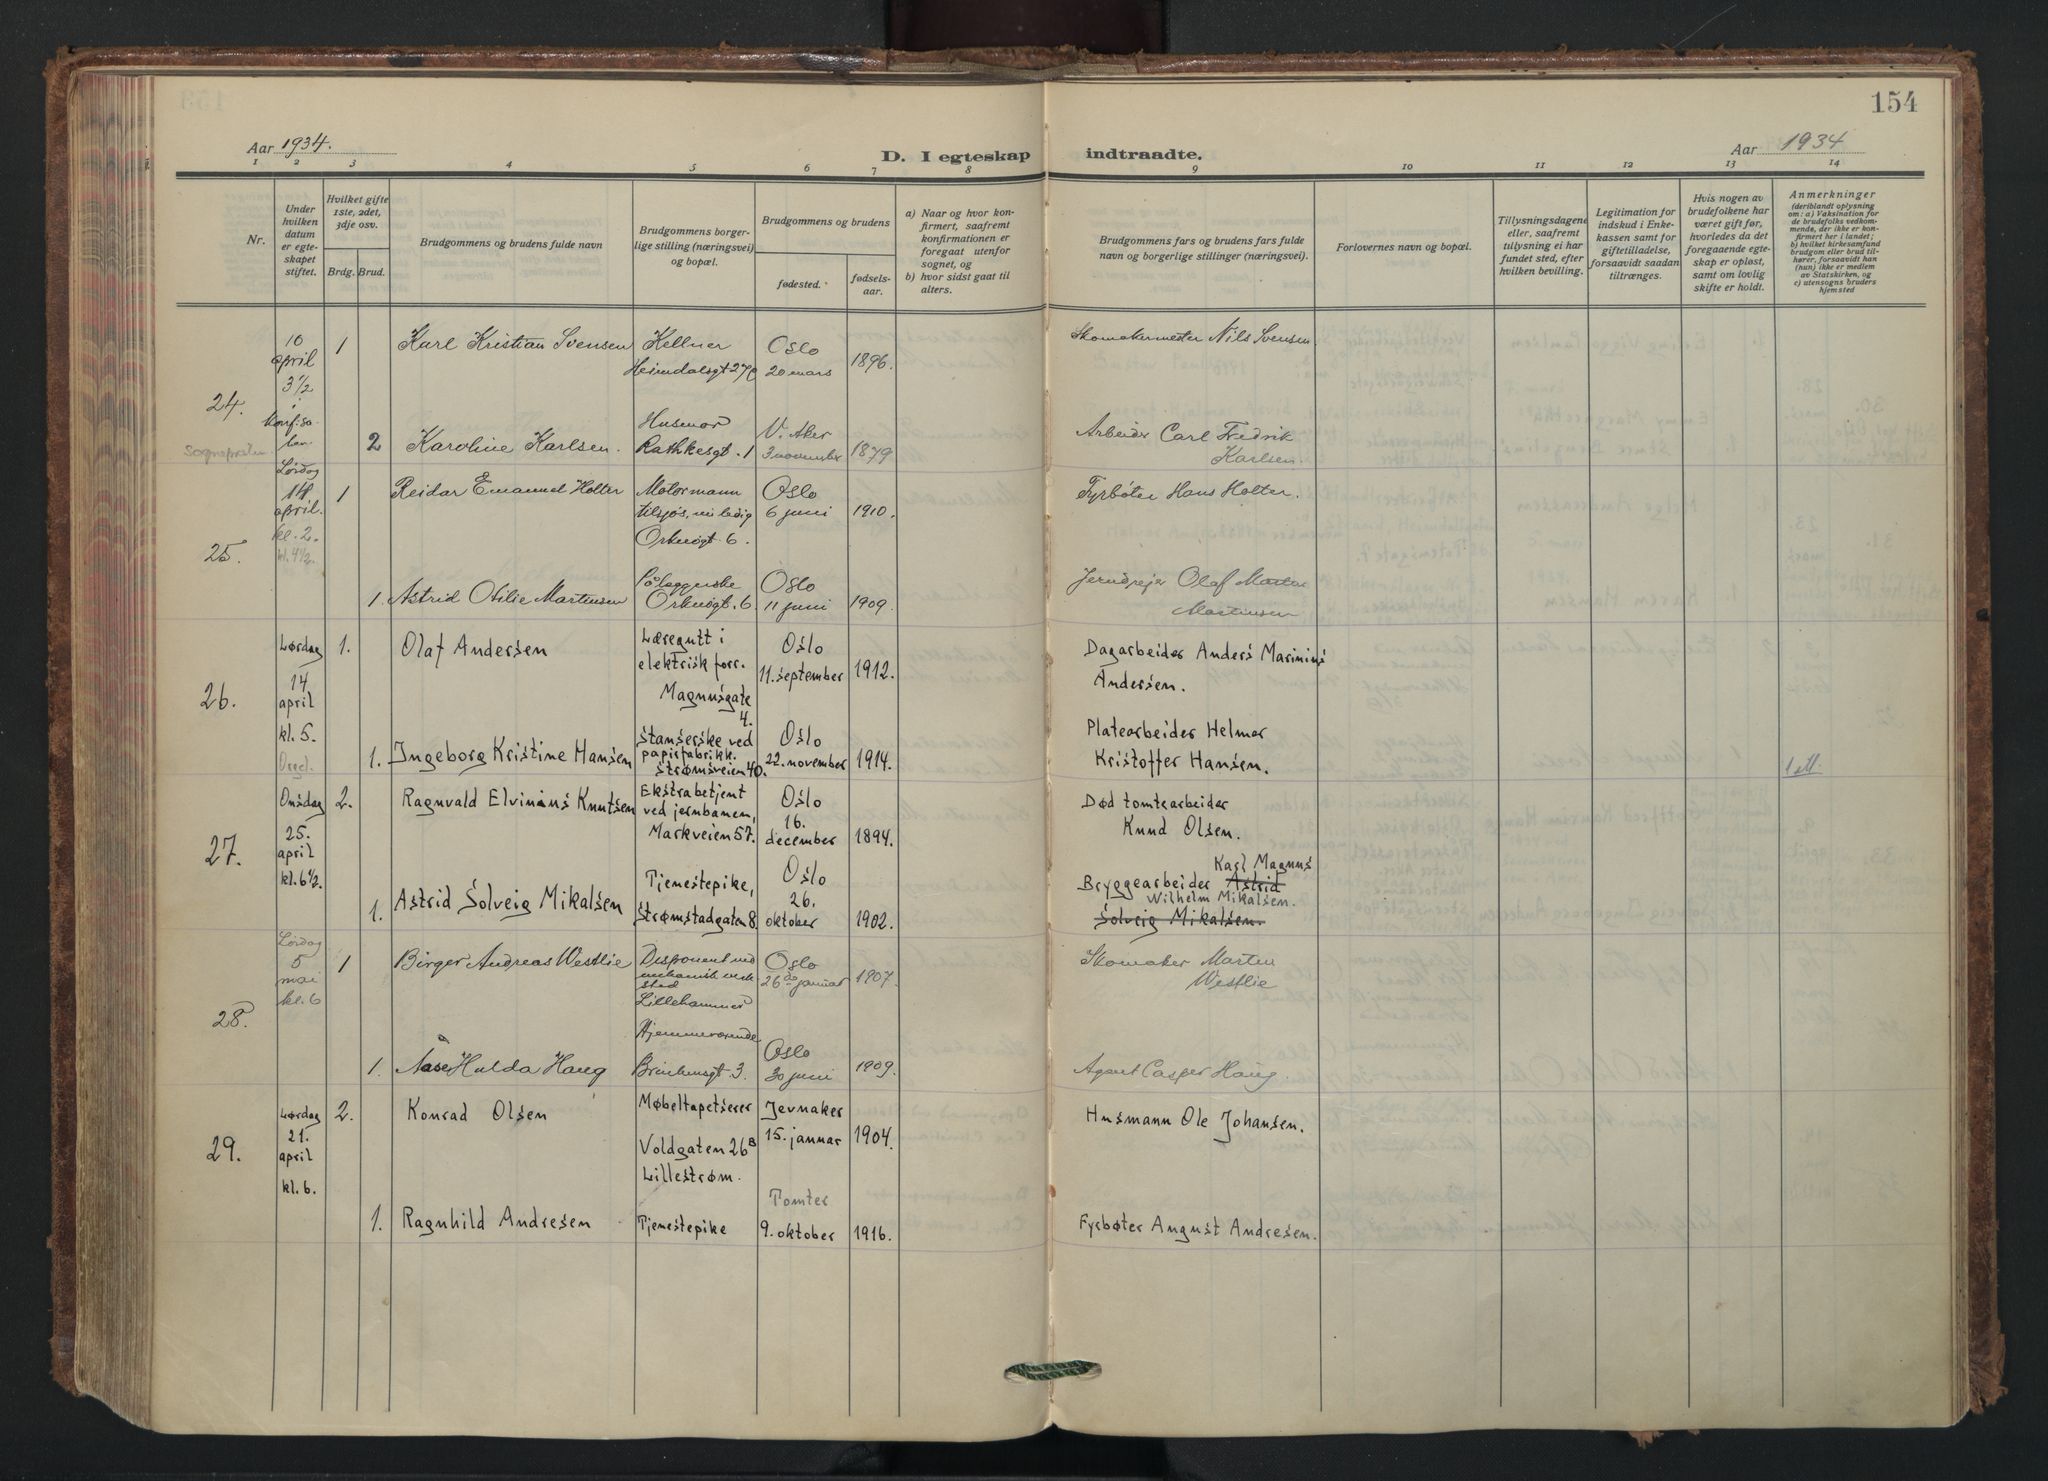 154
Aar 1934.
D. I egteskap indtraadte.
Aar 1934
1 2 3 4 5 6 7 8 9 10 11 12 13 14
Nr.
Under hvilken datum er egteskapet stiftet.
Hvilket gifte 1ste, 2det, 3dje osv.
Brdg. Brud.
Brudgommens og brudens fulde navn
Brudgommens borgerlige stilling (næringsvei) og bopæl.
Brudgommens og brudens
fødested.
fødselsaar.
a) Naar og hvor konfirmert, saafremt konfirmationen er foregaat utenfor sognet, og
b) hvor sidst gaat til alters.
Brudgommens fars og brudens fars fulde navn og borgerlige stillinger (næringsvei).
Forlovernes navn og bopæl.
Tillysningsdagene eller, saafremt tillysning ei har fundet sted, efter hvilken bevilling.
Legitimation for indskud i Enkekassen samt for giftetilladelse, forsaavidt saadan tiltrænges.
Hvis nogen av brudefolkene har været gift før, hvorledes da det foregaaende egteskap er opløst, samt om lovlig skifte er holdt.
Anmerkninger
(deriblandt oplysning om: a) Vaksination for de brudefolks vedkommende, der ikke er konfirmert her i landet; b) hvilket kirkesamfund brudgom eller brud tilhører, forsaavidt han (hun) ikke er medlem av Statskirken, og c) utensogns bruders hjemsted
24.
10 april 3 1/2 i konf.salen.
1 Karl Kristian Svensen
Kellner
Heimdalsgt 27
Oslo
20 mars 1896.
Skomakermester Nils Svensen
2 Karoline Karlsen.
Husmor
Rathkesgt. 1
V. Aker
3 november 1879
Arbeider Carl Fredrik
Karlsen.
25.
Lørdag 14 april. kl. 2.
kl. 4 1/2.
1 Reidar Emanuel Holter
Motormann
tilsjøs, nu ledig
Orknøgt. 6.
Oslo
6 juni 1910.
Fyrbøter Hans Holter.
1. Astrid Otilie Martinsen
Orknøgt. 6
Oslo
11 juni 1909.
Olaf
Martinsen
26.
Lørdag 14 april kl. 5.
1. Olaf Andersen
Læregutt i
elektrisk forr.
Magnusgate
4.
Oslo
11. september 1912.
Dagarbeider Anders Marinius
Andersen.
1. Ingeborg Kristine Hansen
Stanserske ved
papirfabrikk.
Strømsveien 40.
Oslo
22. november 1914.
Platearbeider Helmer
Kristoffer Hansen.
27.
Onsdag 25. april kl. 6 1/2.
2. Ragnvald Elvinius Knutsen
Ekstrabetjent
ved jernbanen,
Markveien 57.
Oslo
16.
december 1894.
Død tomtearbeider
Knud Olsen.
1. Astrid Solveig Mikalsen
Tjenestepike,
Strømstadgaten 8.
Oslo
26.
oktober 1902.
Karl Magnus
Bryggearbeider Astrid
Wilhelm Mikalsen.
Solveig Mikalsen.
28.
Lørdag 5 mai kl. 6
1 Birger Andreas Westlie
Disponent ved
mekanisk verksted
Lillehammer
Oslo
26de januar 1907.
Skomaker Martin
Westlie
1. Aase Hulda Haug
Hjemmeværende
Brinkensgt 3.
Oslo
30 juni 1909.
Agent Casper Haug.
29.
Lørdag 21. april kl. 6.
2. Konrad Olsen
Møbeltapetserer
Voldgaten 26B
Lillestrøm.
Jevnaker
15. januar 1904.
Husmann Ole Johansen.
1. Ragnhild Andresen
Tjenestepike
Tomter
9. oktober 1916.
Fyrbøter August Andresen.